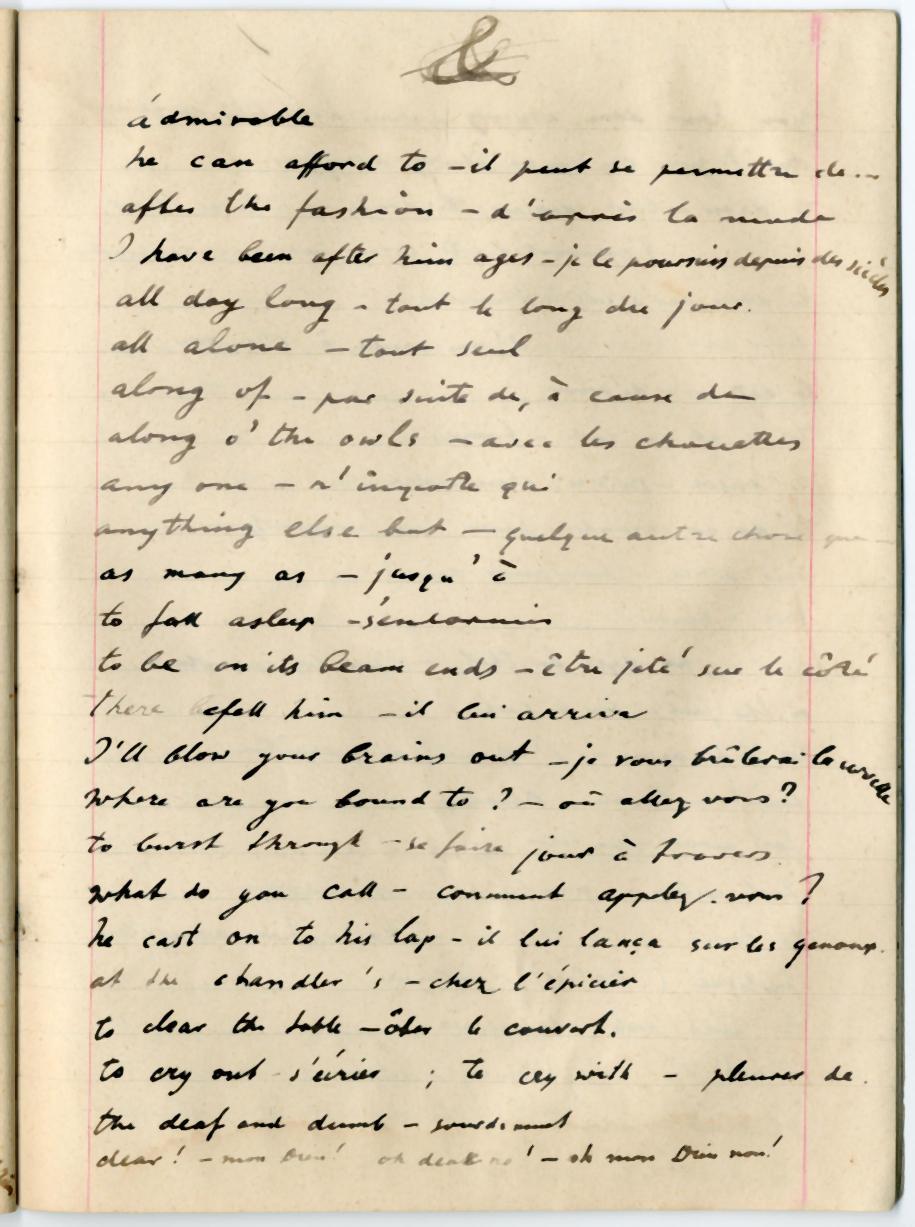 &
ádmirable
he can afford to - il peut se permettre de...
after the fashion - d'après la mode
I have been after him ages - je le poursuis depuis des siècles
all day long - tout le long du jour.
all alone - tout seul
along of - par suite de, à cause de
along o' the owls - avec les chouettes
any one - n'importe qui
anything else but - quelque autre chose que
as many as - jusqu'à
to fall asleep - s'endormir
to be on its beam ends - être jeté sur le côté
there befell him - il lui arriva
I'll blow your brains out - je vous brûlerai la cervelle
where are you bound to? - où allez vous?
to burst through - se faire jour à travers
what do you call - comment appelez-vous?
he cast on to his lap - il lui lança sur les genoux.
at the chandler's - chez l'épicier
to clear the table - ôter le couvert.
to cry out s'écrier ; to cry with - pleurer de
the deaf and dumb - sourd-muet
dear! - mon Dieu! oh dear no! - oh mon Dieu non!